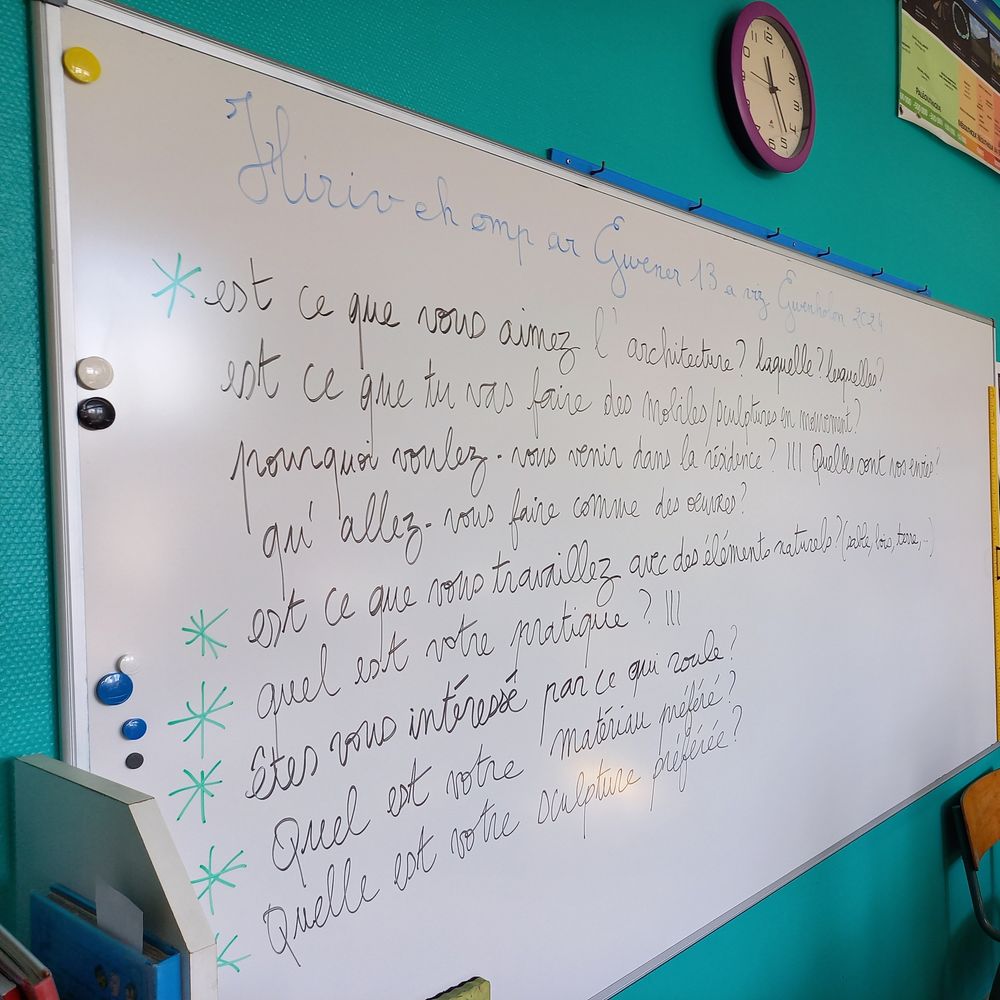 Hiriv eh omp ar Gwener 13 a viz Gwenholon 2024
* est ce que vous aimez l'architecture? laquelle? lesquelles?
est ce que tu vas faire des mobiles/sculptures en mouvement?
pourquoi voulez-vous venir dans la résidence? III Quelles sont vos envies?
qu'allez-vous faire comme des oeuvres?
* est ce que vous travaillez avec des éléments naturels? (sable, bois, terre, ...)
* quel est votre pratique? III
* êtes vous intéressé par ce qui roule?
* Quel est votre matériau préféré?
* Quelle est votre sculpture préférée?